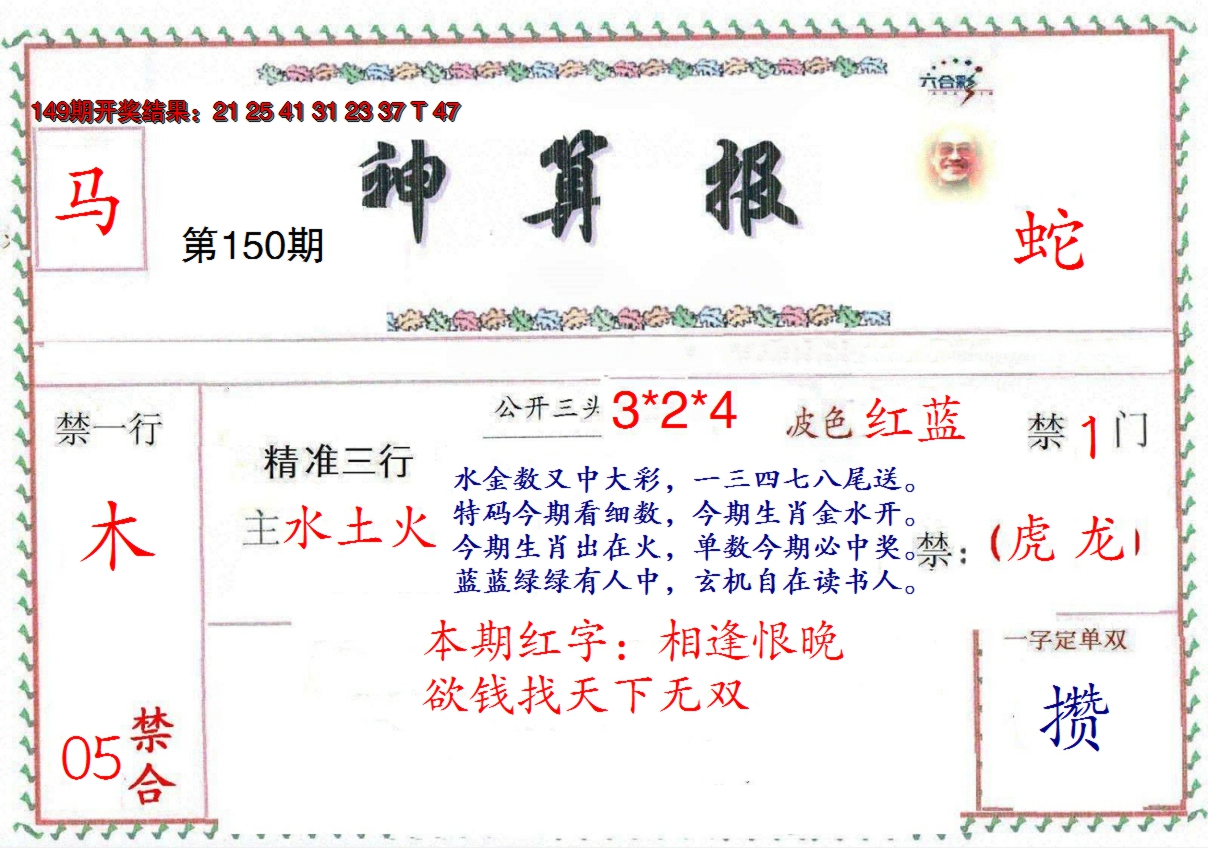 六合彩
149期开奖结果：21 25 41 31 23 37 T 47
神算报
马
第150期
蛇
公开三头 3*2*4
波色 红蓝
禁一行
禁1门
精准三行
主水土火
水金数又中大彩，一三四七八尾送。
特码今期看细数，今期生肖金水开。
今期生肖出在火，单数今期必中奖。
蓝蓝绿绿有人中，玄机自在读书人。
木
禁：（虎 龙）
本期红字：相逢恨晚
欲钱找天下无双
一字定单双
攒
05禁合